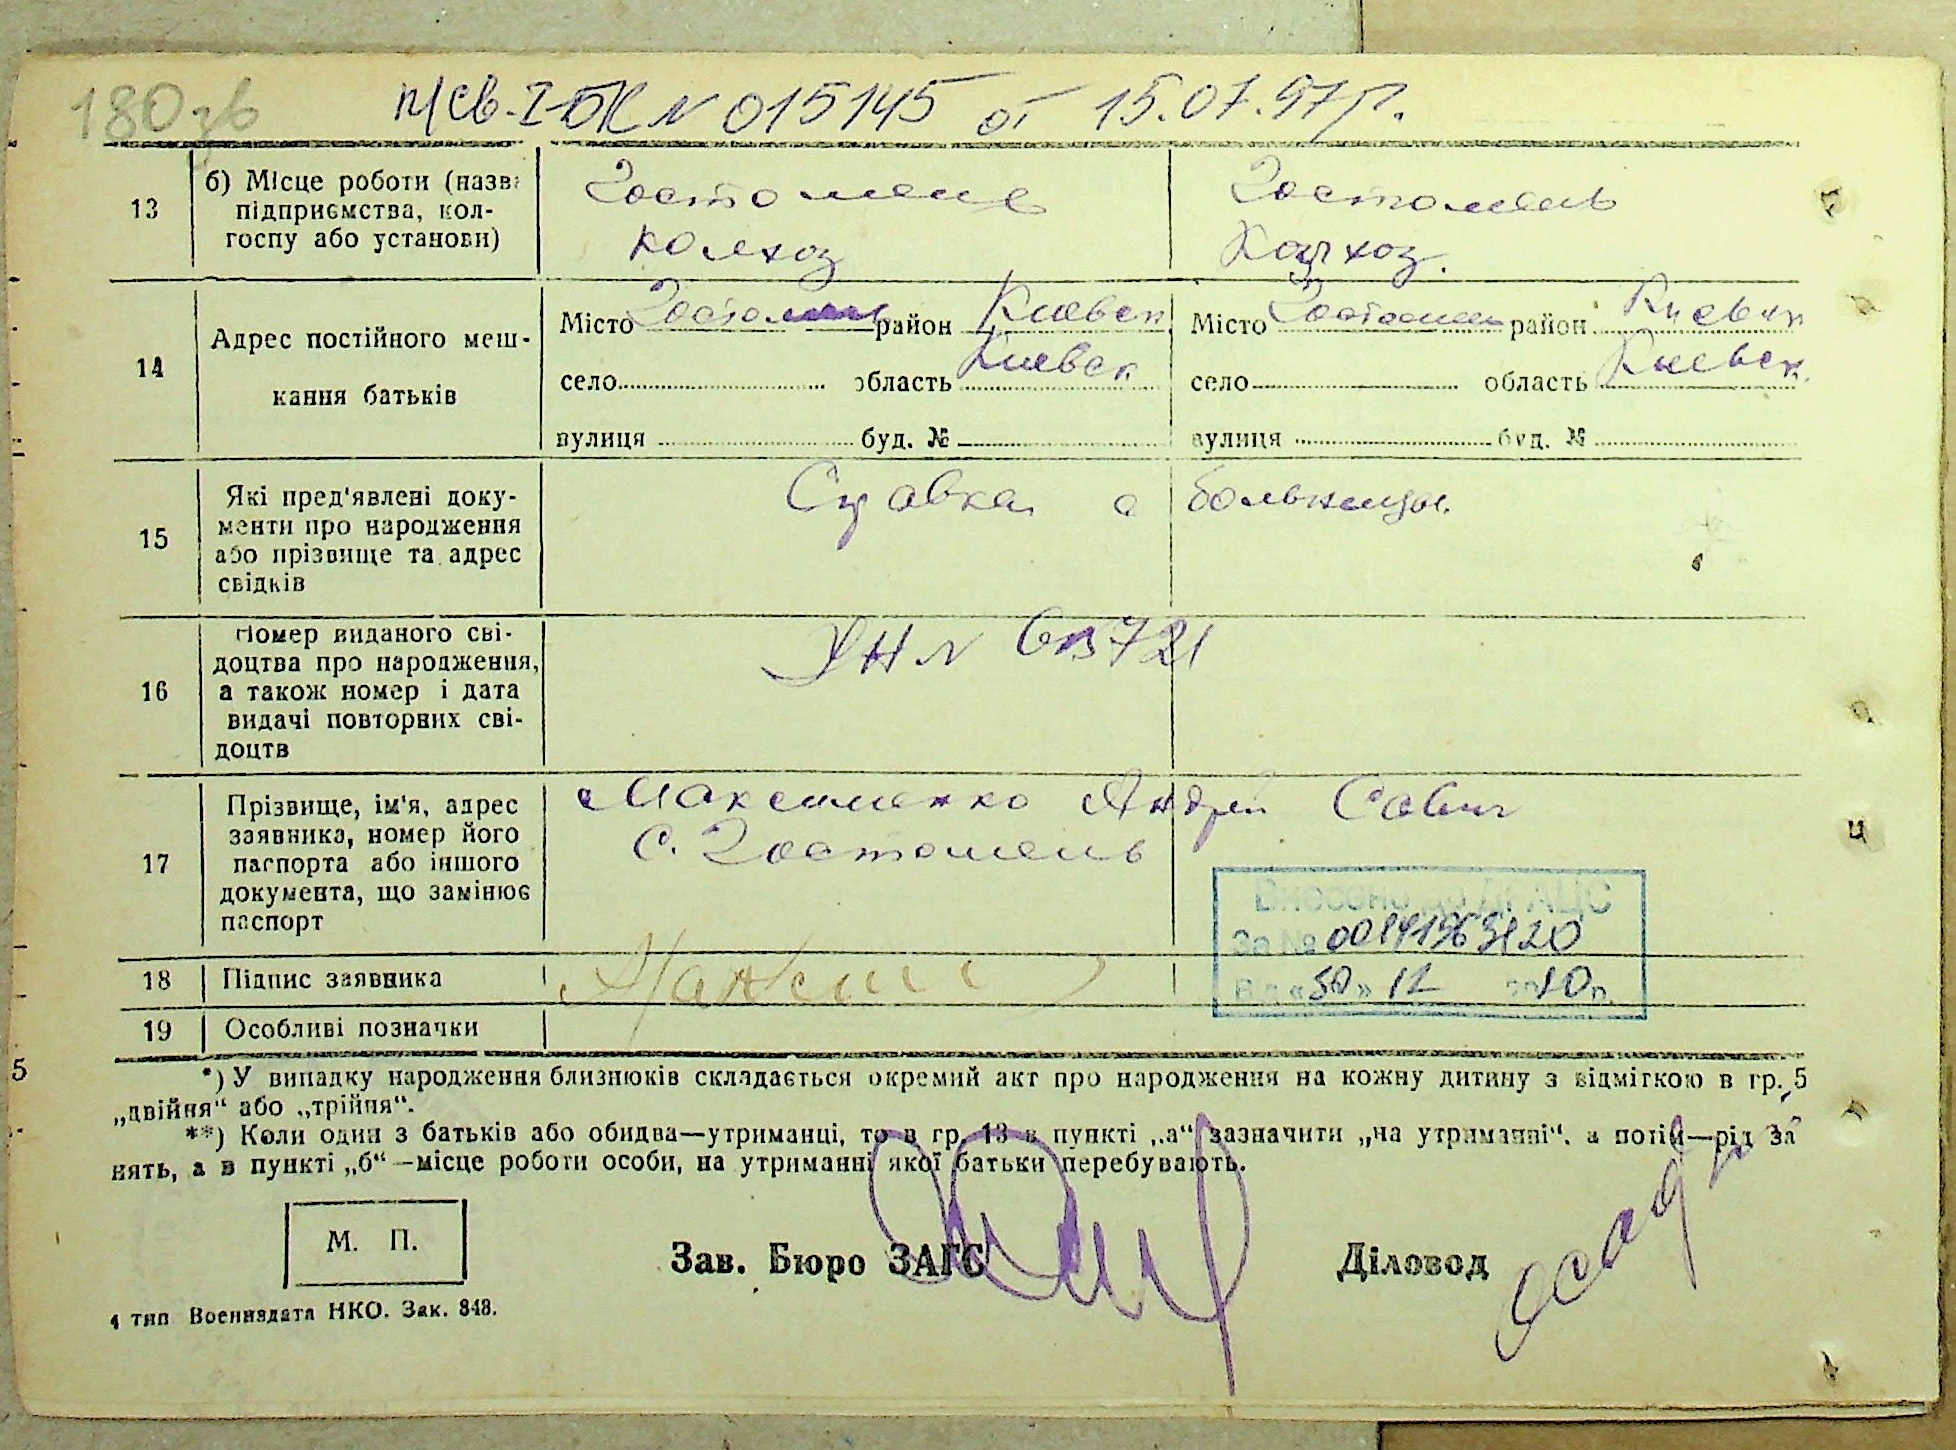 180 зв
п/св. I-БК № 015145 от 15.07.97 г.
13
б) Місце роботи (назва
підприємства, кол-
госпу або установи)
Гостомель
колхоз
Гостомель
Колхоз.
14
Адрес постійного меш-
кання батьків
Місто Гостомель район Киевск
село область Киевск
вулиця буд. №
Місто Гостомель район Киевск
село область Киевск.
вулиця буд. №
15
Які пред'явлені доку-
менти про народження
або прізвище та адрес
свідків
Справка с больницы.
16
Номер виданого сві-
доцтва про народження,
а також номер і дата
видачі повторних сві-
доцтв
УН №
17
Прізвище, ім'я, адрес
заявника, номер його
паспорта або іншого
документа, що замінює
паспорт
Максименко Андрей Савич
с. Гостомель
Внесено до ДРАЦС
За №
Від «30» 12 2010 р.
18
Підпис заявника
19
Особливі позначки
*) У випадку народження близнюків складається окремий акт про народження на кожну дитину з відміткою в гр. 5
„двійня“ або „трійня“.
**) Коли один з батьків або обидва—утриманці, то в гр. 13 в пункті „а“ зазначити „на утриманні“, а потім—рід за
нять, а в пункті „б“—місце роботи особи, на утриманні якої батьки перебувають.
М. П.
Зав. Бюро ЗАГС
Діловод
4 тип Воениздата НКО. Зак. 848.
5